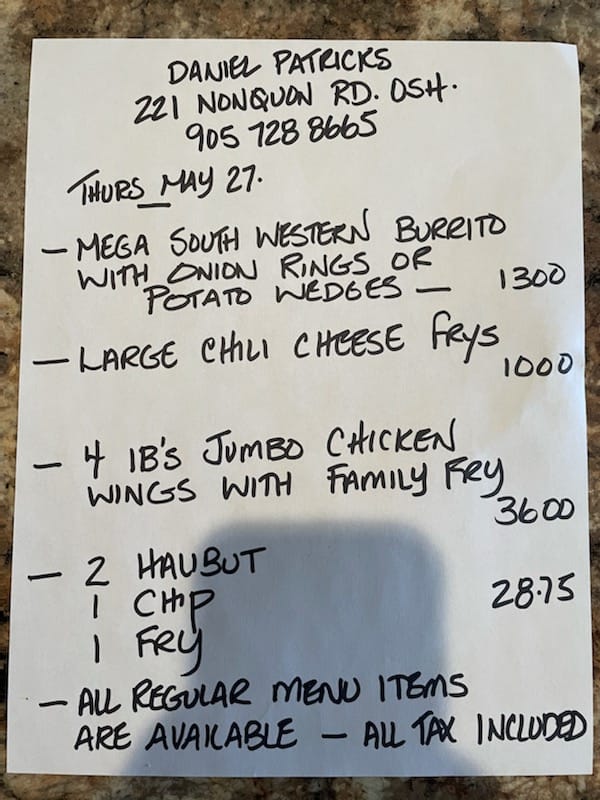 DANIEL PATRICKS
221 NONQUON RD. OSH.
905 728 8665
THURS MAY 27.
- MEGA SOUTH WESTERN BURRITO
WITH ONION RINGS OR
POTATO WEDGES - 1300
- LARGE CHILI CHEESE FRYS
1000
- 4 lB'S JUMBO CHICKEN
WINGS WITH FAMILY FRY
3600
- 2 HALIBUT
1 CHIP 28.75
1 FRY
- ALL REGULAR MENU ITEMS
ARE AVAILABLE - ALL TAX INCLUDED